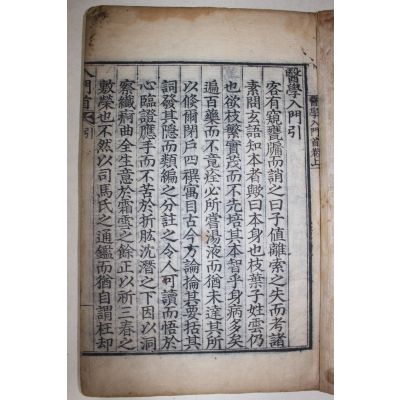 醫學入門首卷上
醫學入門引
客有窺甕牖而誚之曰子值離索之失而考諸
素問玄語知本者歟曰本身也枝葉子姓雲仍
也欲枝繁實茂而不先培其本智乎身病多矣
遍百藥而不竟痊必所嘗湯液而猶未達其所
以倏爾閉戶四禩寓目古今方論掄其要括其
詞發其隱而類編之分註之令人可讀而悟於
心臨證應手而不苦於折肱沉潛之下因以洞
察纖痾曲全生意於霜雪之餘正以祈三春之
敷榮也不然以司馬氏之通鑑而猶自謂枉却
入門首 引